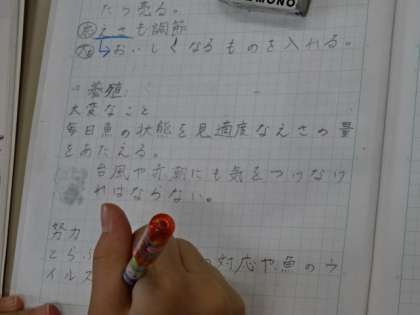 たら売る。
えさも調節
おいしくなるものを入れる。
MONO
養殖
大変なこと
毎日魚の状態を見適度なえさの量
をあたえる。
台風や赤潮にも気をつけなけ
ればならない。
努力
とら
の対応や魚のウ
イルス